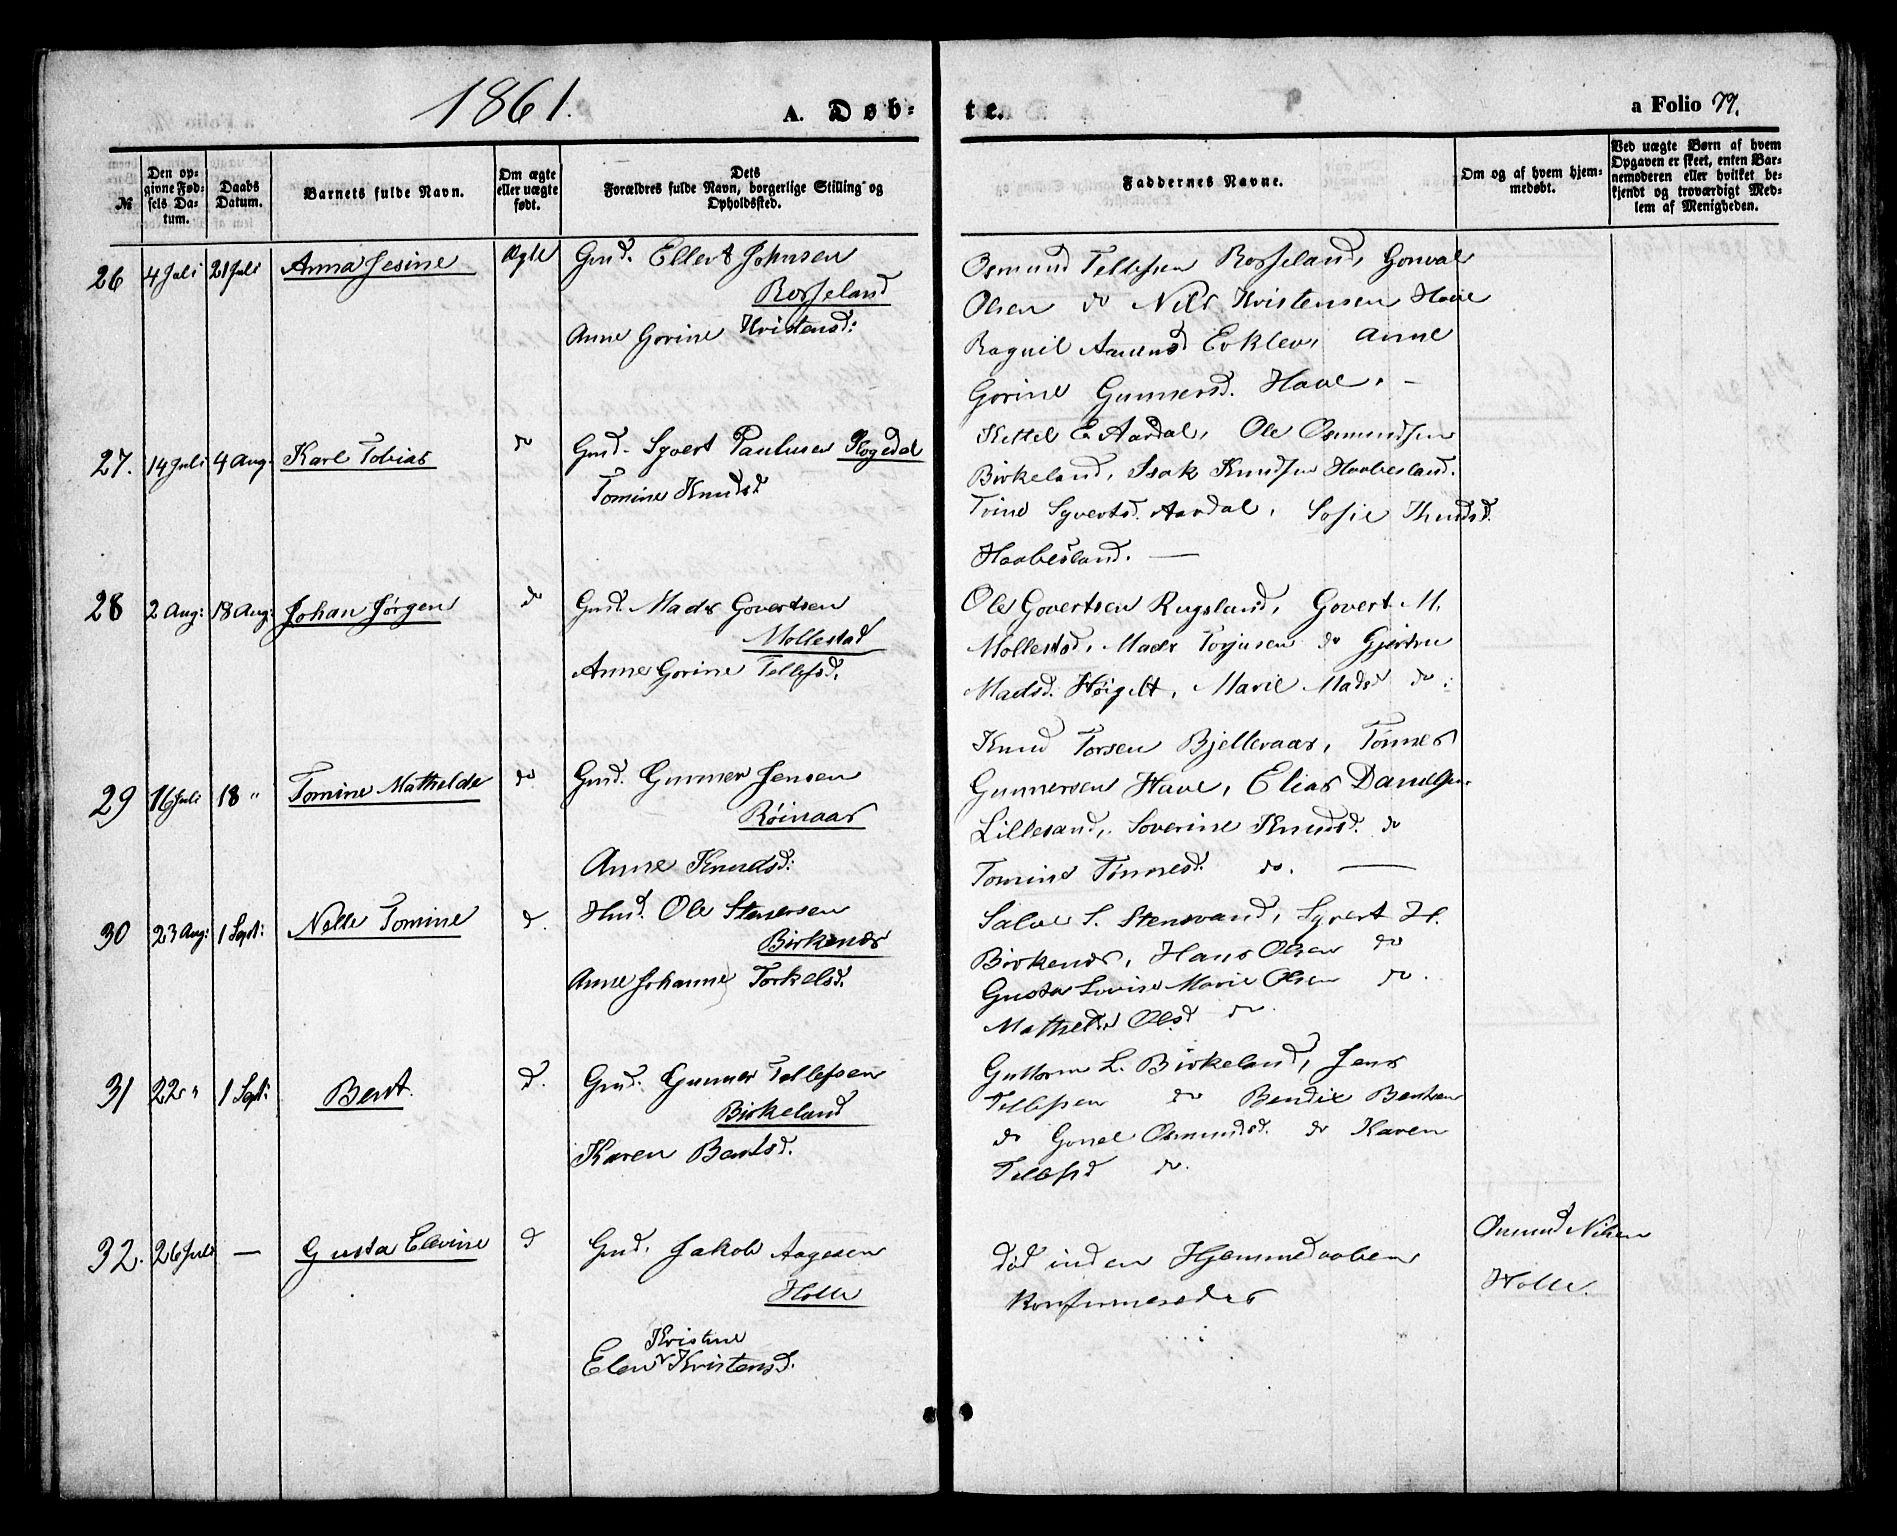 1861. A. Døb= te. a Folio 79.
№
Den op-
givne Fød-
sels Da-
tum.
Daabs
Datum.
Barnets fulde Navn.
Om ægte
eller uægte
født.
Dets
Forældres fulde Navn, borgerlige Stilling og
Opholdssted.
Faddernes Navne.
Om og af hvem hjem-
medøbt.
Ved uægte Børn af hvem
Opgaven er skeet, enten Bar-
nemoderen eller hvilket be-
kjendt og troværdigt Med-
lem af Menigheden.
26 4 Juli 21 Juli Anna Jesine Ægte Gmd. Ellert Johnsen
Rosseland
Anne Gorine Kristensd:
Osmund Tellefsen Rosseland, Gonval
Olsen do Nils Kristensen Haae
Ragnil Aanens Erklev, Anne
Gorine Gunnersd. Haae. -
27. 14 Juli 4 Aug. Karl Tobias do Gmd. Syvert Paulusen Flogedal
Tomine Knudsd
Kittel E Aardal, Ole Osmundsen
Birkeland, Isak Knudsen Haabesland.
Trine Syvertsd. Aardal, Sofie Knudsd.
Haabesland. —
28 2 Aug: 18 Aug: Johan Jørgen do Gmd. Mads Govertsen
Mollestad
Anne Gorine Tellefsd.
Ole Govertsen Rugsland, Govert M.
Mollestad, Mads Torjusen do
Madsd. Marie Madsd do:
29 16 Juli 18 " Tomine Mathilde do Gmd. Gunner Jensen
Røinaas
Anne Knudsd:
Knud Torsen Bjellevaas, Tønnes
Gunnersen Haae, Elias Danielsen
Lillesand, Soverine Knudsd. do
Tomine Tønnesd. do. —
30 23 Aug: 1 Sept: Nelle Tomine d. Hmd. Ole Stenersen
Birkenes
Anne Johanne Torkelsd.
Salve S. Stensvand, Syvert H.
Birkenes, Hans Olsen do
Gusta Lovise Marie Olsen do.
Mathilde Olsd do.
31 22 " 1 Sept: Bent. d. Gmd. Gunner Tellefsen
Birkeland
Karen Bentsd.
Guttorm L. Birkeland, Jens
Tellefsen do Bendix Bentsen
do Gonel Osmundsd. do Karen
Tellefsd do.
32. 26 Juli — Gusta Elevine d Gmd. Jakob Aagesen
Holle
Kristine
Elen Kristensd.
død inden Hjemmedaaben
konfirmeredes
Osmund Nilsen
Holle.